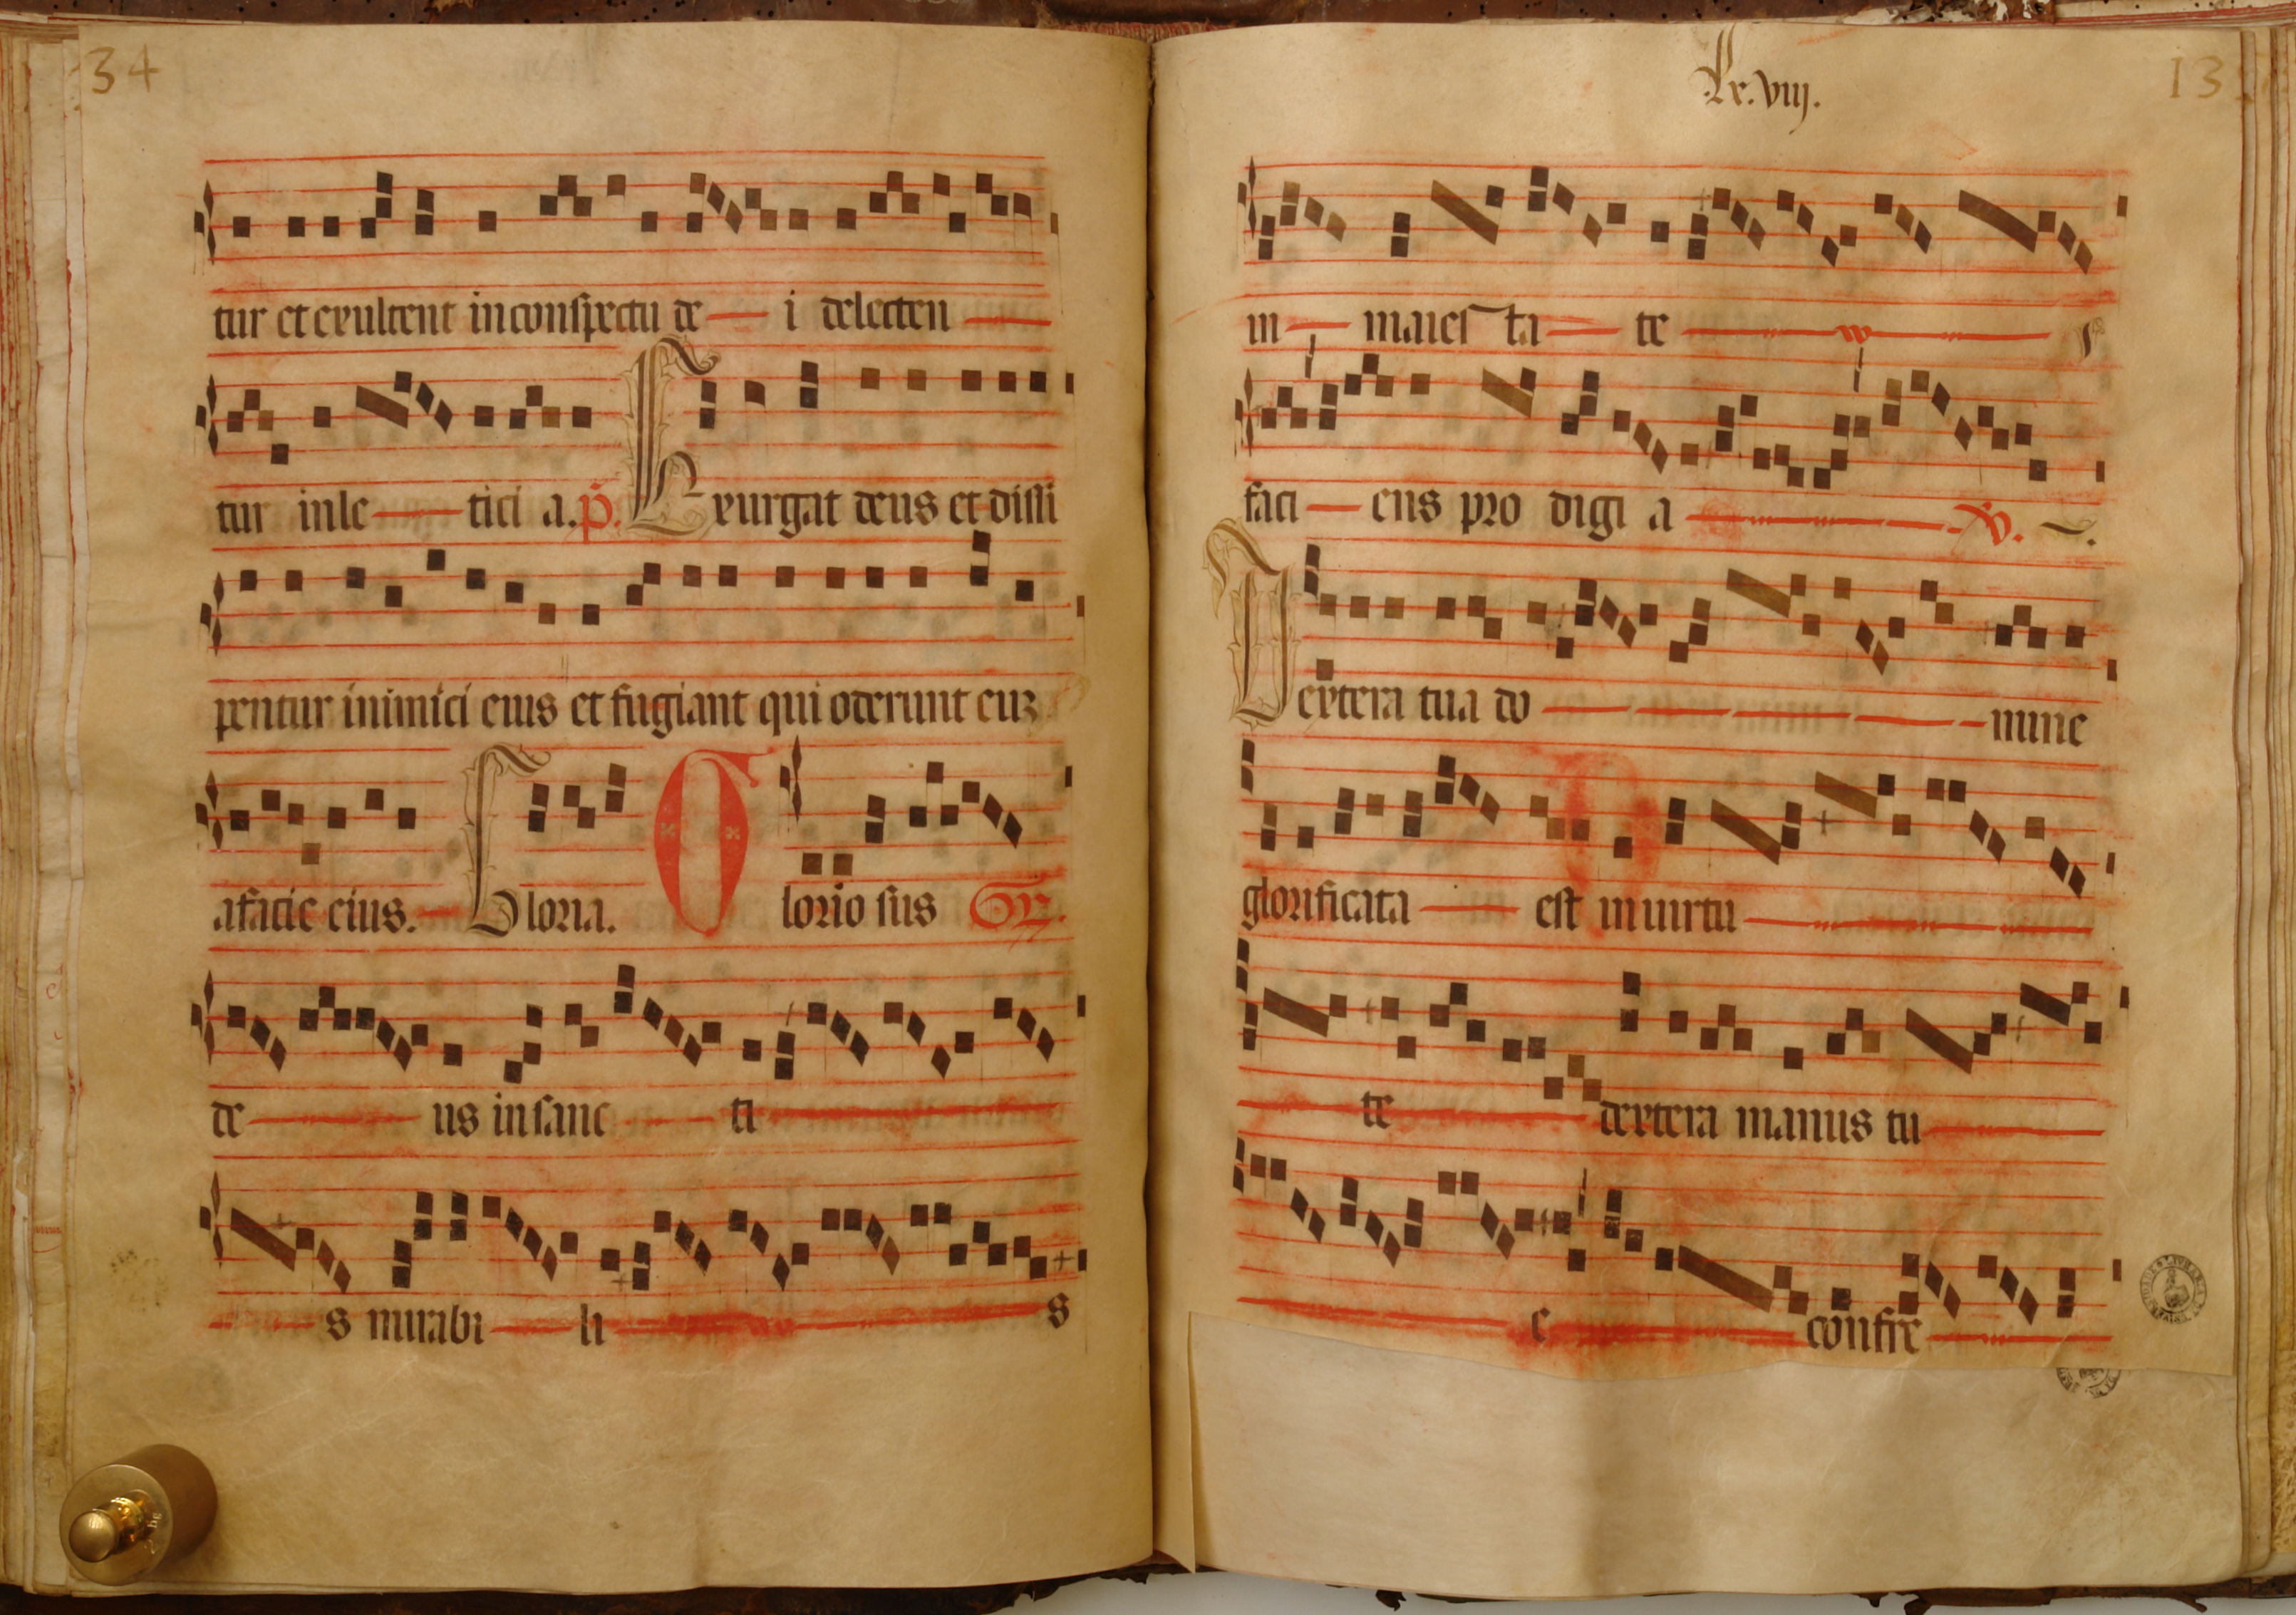 34
tur et exultent in conspectu de i delecten
tur in le tici a. p. Exurgat deus et dissi
pentur inimici eius et fugiant qui oderunt euz
a facie eius. Gloria. Glorio sus Gr.
de us in sanc ti
s mirabi li s
Lx.viij.
13
in maies ta te
faci ens pro digi a V.
Dextera tua do mine
glorificata est in uirtu
te dextera manus tu
e confre